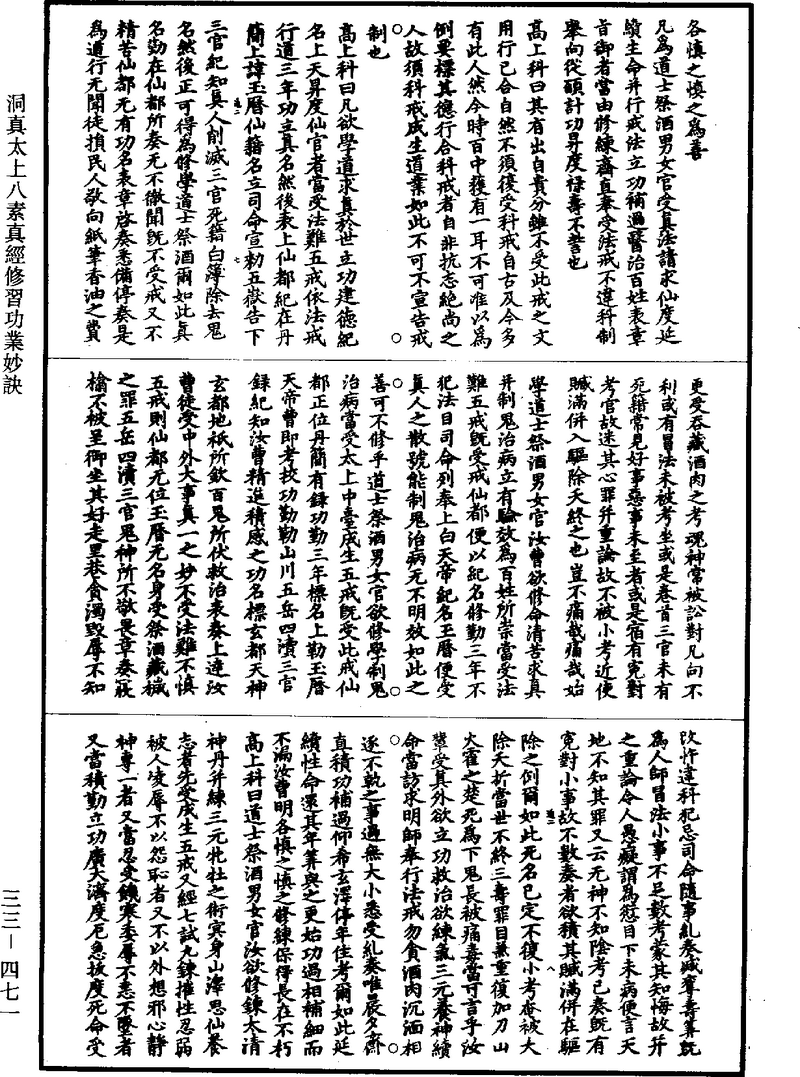 洞真太上八素真經修習功業妙訣
三三—四七一
各慎之慎之爲善
凡爲道士祭酒男女官受真法請求仙度延
續生命并行戒法立功補過醫治百姓表章
首御者當由修練齋直奉受法戒不違科制
舉向從願計功昇度祿壽不訾也
高上科曰其有出自貴分雖不受此戒之文
用行已合自然不須復受科戒自古及今多
有此人然今時百中獲有一耳不可准以爲
例要標其德行合科戒者自非抗志絕尚之
人故須科戒成生道業如此不可不宣告戒
制也
高上科曰凡欲學道求真於世立功建德紀
名上天昇度仙官者當受法難五戒依法戒
行道三年功立真名然後表上仙都紀在丹
簡上諱玉曆仙籍名立司命宣勑五嶽告下
三官紀知真人削滅三官死籍白簿除去鬼
名然後正可得爲修學道士祭酒爾如此真
名勤在仙都所奏无不徹聞旣不受戒又不
精苦仙都无有功名表章啓奏悉備停奏是
爲道行无聞徒損民人敬向紙筆香油之費
更受吞藏酒肉之考魂神常被訟對凡向不
利或有冒法未被考坐或是卷首三官未有
死籍常見好事惡事未至者或是宿有寃對
考官故迷其心罪并重論故不被小考近使
贓滿併入驅除夭終之也豈不痛哉痛哉始
學道士祭酒男女官汝曹欲修命清苦求真
并制鬼治病立有驗效爲百姓所崇當受法
難五戒旣受戒仙都便以紀名修勤三年不
犯法目司命列奉上白天帝紀名玉曆便受
真人之散號能制鬼治病无不明效如此之
善可不修乎道士祭酒男女官欲修學制鬼
治病當受太上中臺成生五戒旣受此戒仙
都正位丹簡有錄功勤三年標名上勒玉曆
天帝曹即考校功勤勒山川五岳四瀆三官
録紀知汝曹精進積感之功名標玄都天神
玄都地祇所欽百鬼所伏救治表奏上達汝
曹徒受中外大事真一之妙不受法難不慎
五戒則仙都无位玉曆无名身受祭酒藏穢
之罪五岳四瀆三官鬼神所不敬畏章奏寢
檢不被呈御坐其好走里巷貪濁毀辱不知
改忤違科犯忌司命隨事糺奏減奪壽筭旣
爲人師冒法小事不足數考蒙其知悔故并
之重論令人愚癡謂爲愆目下未病便言天
地不知其罪又云无神不知陰考已奏旣有
寃對小事故不數奏者欲積其贓滿併在驅
除之例爾如此死名已定不復小考庵被大
除夭折當世不終三壽罪目兼重復加刀山
火霍之楚死爲下鬼長被痛毒當可言乎汝
輩受其外欲立功救治欲練氣三元養神續
命當訪求明師奉行法戒勿貪酒肉沉湎相
逐不軌之事過無大小悉受糺奏唯晨夕齋
直積功補過仰希玄澤停年住考爾如此延
續性命還其年筭與之更始功過相補細而
不漏汝曹明各慎之慎之修練保得長在不朽
高上科曰道士祭酒男女官汝欲修鍊太清
神丹并練三元牝牡之術寅身山澤思仙養
志者先受成生五戒又經七試九鍊摧性忍弱
被人凌辱不以怨恥者又不以外想邪心靜
神專一者又當忍受饑寒委辱不恚不墮者
又當積勤立功廣大濟度厄急拔度死命受